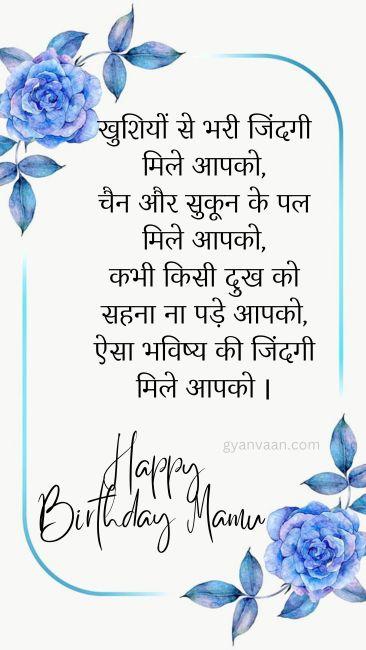 खुशियों से भरी जिंदगी
मिले आपको,
चैन और सुकून के पल
मिले आपको,
कभी किसी दुख को
सहना ना पड़े आपको,
ऐसा भविष्य की जिंदगी
मिले आपको ।
gyanvaan.com
Happy
Birthday Mamu